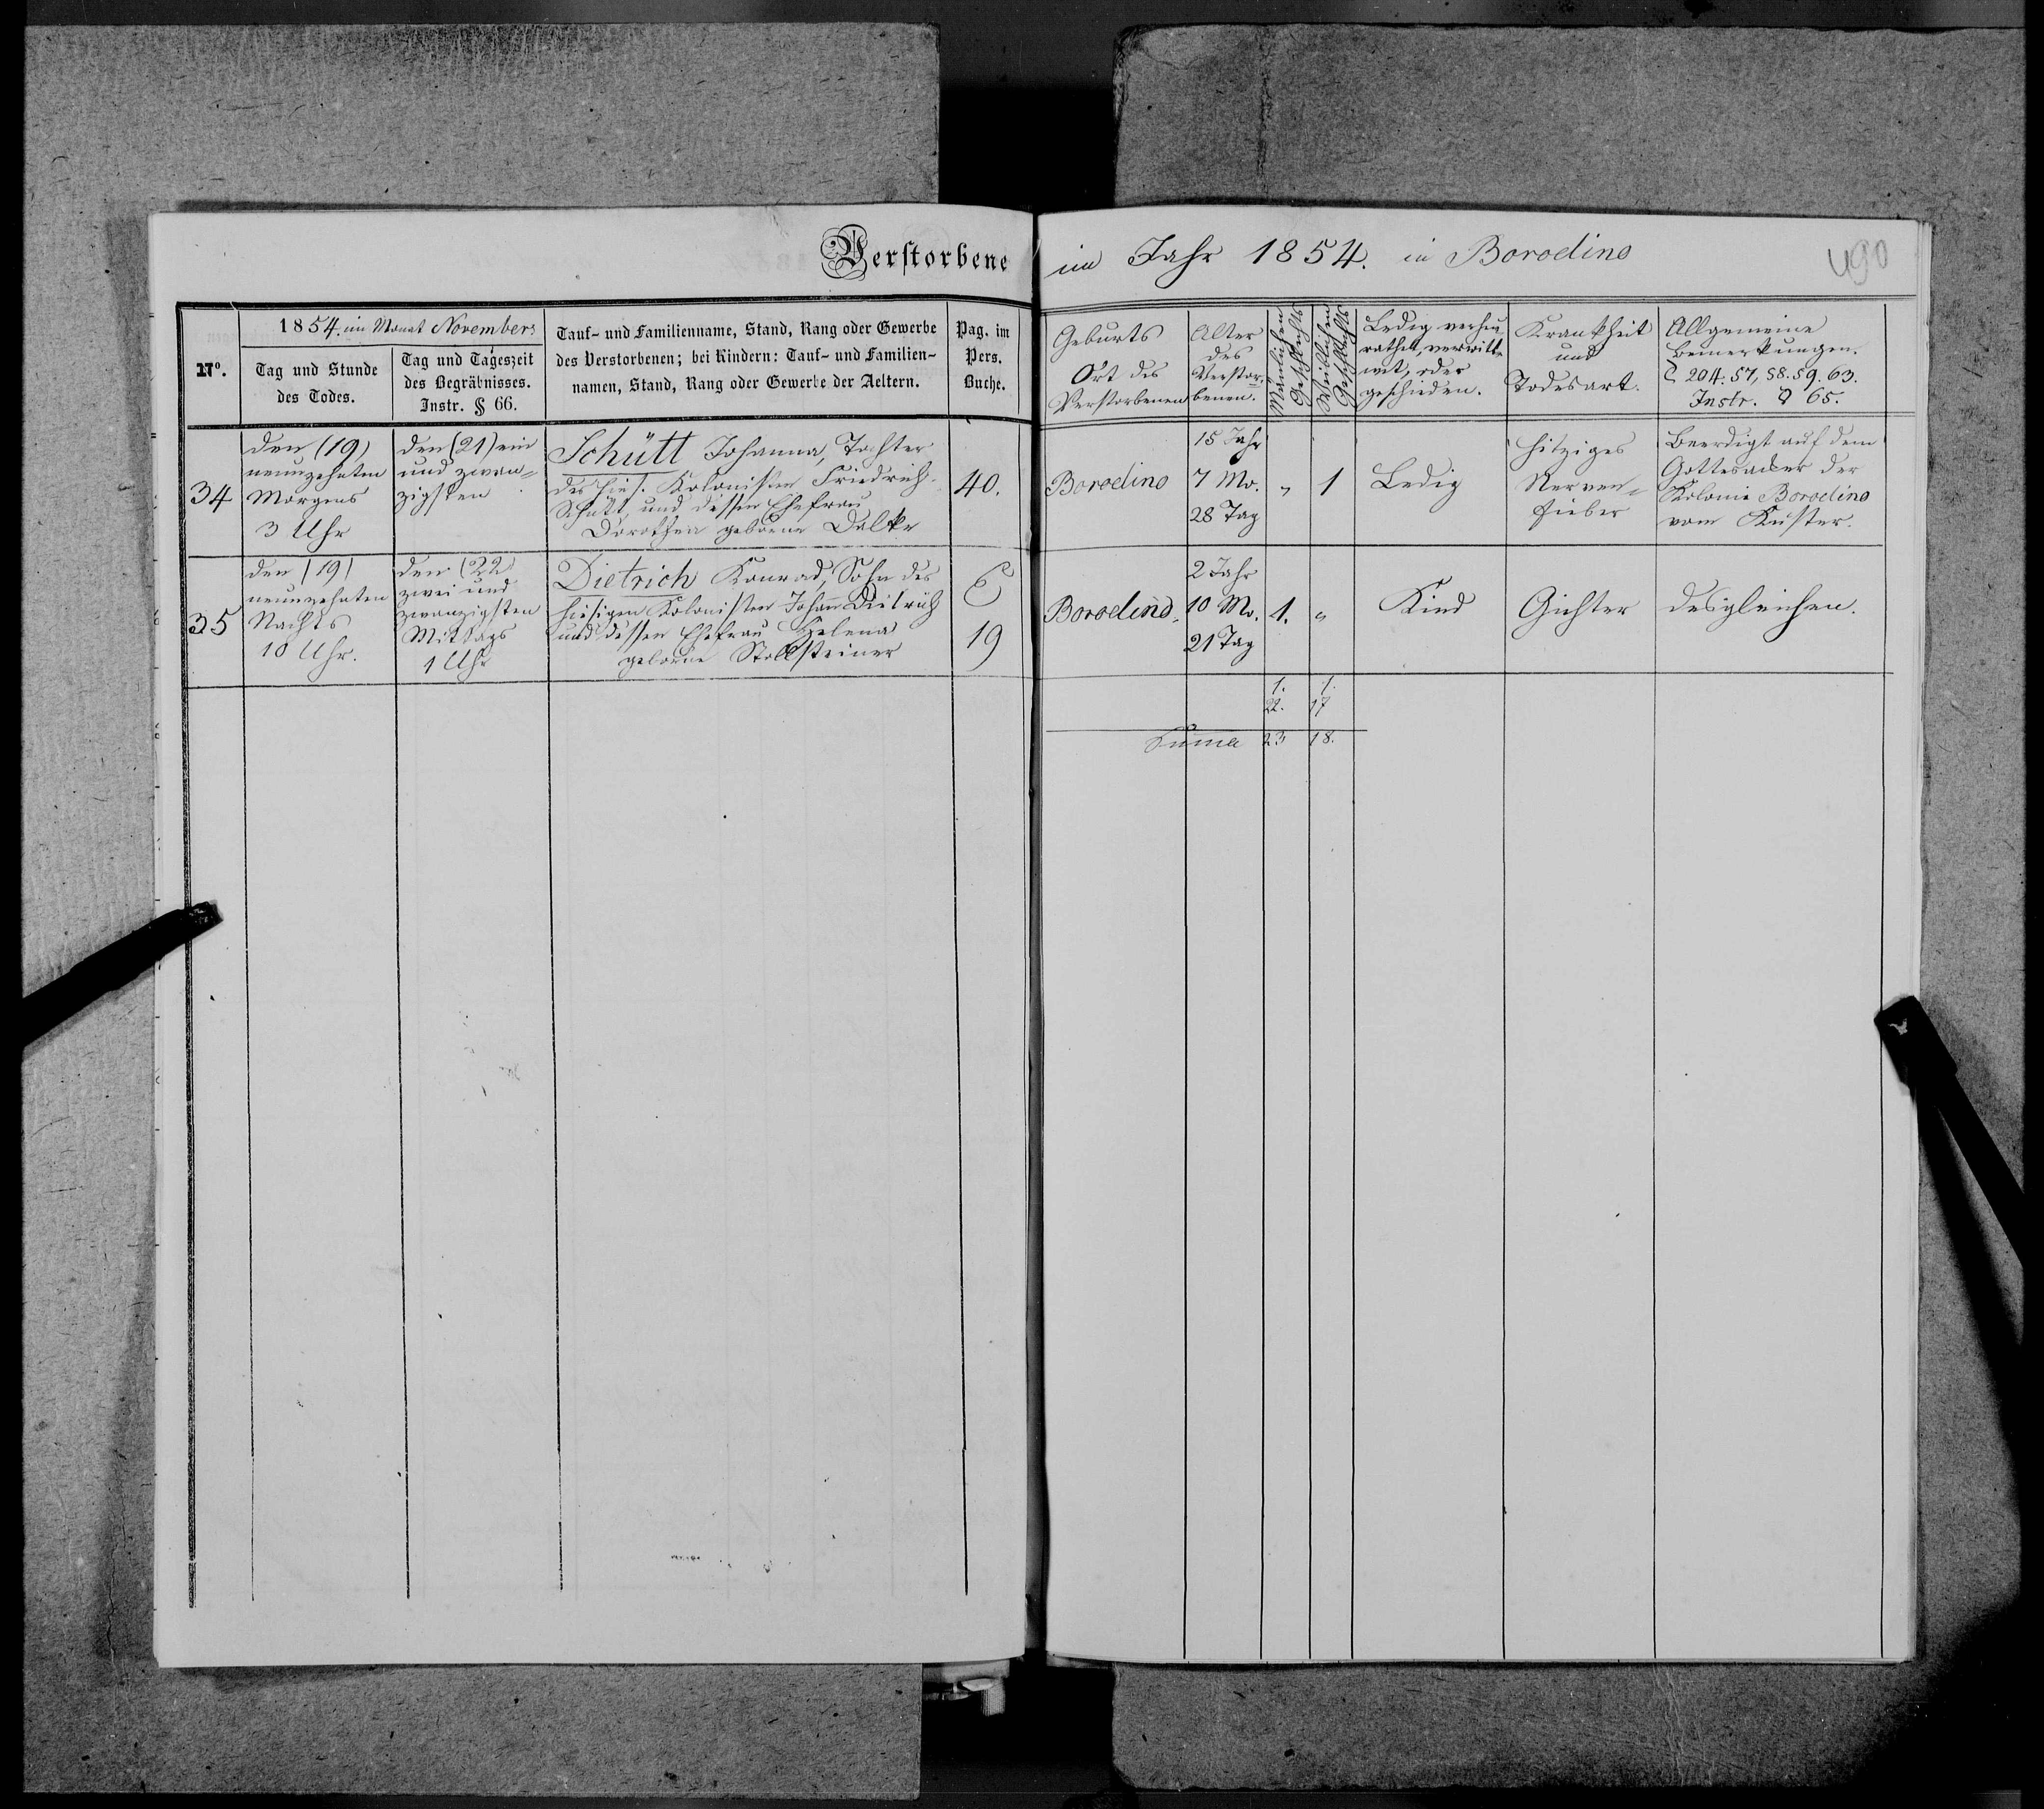 Verstorbene im Jahr 1854. in Borodino
490
Nº.
1854. im Monat November
Tag und Stunde
des Todes.
Tag und Tageszeit
des Begräbnisses.
Instr. § 66.
Tauf- und Familienname, Stand, Rang oder Gewerbe
des Verstorbenen; bei Kindern: Tauf- und Familien-
namen, Stand, Rang oder Gewerbe der Aeltern.
Pag. im
Pers.
Buche.
Geburts
Ort des
Verstorbenen
Alter
des
Verstor-
benen.
Mänlichen
Geschlechts
Weiblichen
Geschlechts
Ledig verheu-
rathet, verwitt-
wet, oder
geschieden.
Krankheit
und
Todesart.
Allgemeine
Bemerkungen.
204. 57, 58. 59. 63.
Instr. § 65.
34
den (19)
neunzehnten
Morgens
3 Uhr
den (21) ein
und zwan-
zigsten
Schütt Johanna, Tochter
des hies. Kolonisten Friedrich
Schütt, und dessen Ehefrau
Dorothea geborne Dalke
40.
Borodino
15 Jahr
7 Mo.
28 Tag
"
1
Ledig
hitziges
Nerven-
fieber
Beerdigt auf dem
Gottesacker der
Kolonie Borodino
vom Küster.
35
den (19)
neunzehnten
Nachts
10 Uhr.
den (22)
zwei und
zwanzigsten
Mittags
1 Uhr
Dietrich Konrad, Sohn des
hiesigen Kolonisten Johan̄ Dietrich
und dessen Ehefrau Helena
geborne Stollsteiner
19
Borodino,
2 Jahr
10 Mo.
21 Tag
1.
"
Kind
Gichter
desgleichen.
1. 1.
22. 17
Sum̄a 23 18.